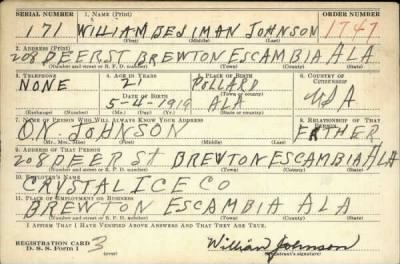 SERIAL NUMBER 1. NAME (Print) ORDER NUMBER
171 WILLIAM JOHNSON 1747
(First) (Middle) (Last)
2. ADDRESS (Print)
208 DEER ST BREWTON ESCAMBIA ALA
(Number and street or R. F. D. number) (Town) (County) (State)
3. TELEPHONE 4. AGE IN YEARS 5. PLACE OF BIRTH 6. COUNTRY OF CITIZENSHIP
NONE 21 POLLARD
DATE OF BIRTH (Town or county)
5-4-1919 ALA USA
(Exchange) (Number) (Mo.) (Day) (Yr.) (State or country)
7. NAME OF PERSON WHO WILL ALWAYS KNOW YOUR ADDRESS 8. RELATIONSHIP OF THAT PERSON
O.N. JOHNSON FATHER
(Mr., Mrs., Miss) (First) (Middle) (Last)
9. ADDRESS OF THAT PERSON
208 DEER St BREWTON ESCAMBIA ALA
(Number and street or R. F. D. number) (Town) (County) (State)
10. EMPLOYER'S NAME
CRYSTAL ICE CO
11. PLACE OF EMPLOYMENT OR BUSINESS
BREWTON ESCAMBIA ALA
(Number and street or R. F. D. number) (Town) (County) (State)
I AFFIRM THAT I HAVE VERIFIED ABOVE ANSWERS AND THAT THEY ARE TRUE.
REGISTRATION CARD
D. S. S. Form 1 3 William Johnson
(over) (Registrant's signature)